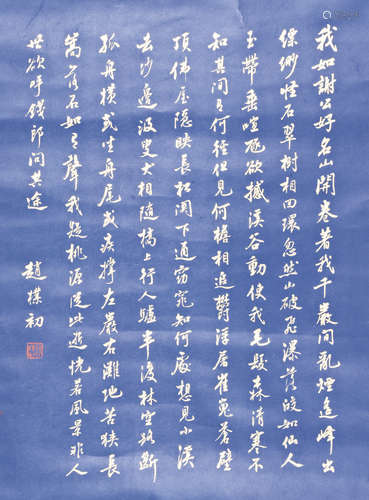 我如謝公好名山開卷著我千巖間亂煙遠峰出
縹緲怪石翠樹相回環忽然山破飛瀑落皎如仙人
玉帶垂喧豗欲撼溪谷動使我毛髮森清寒不
知其間有何徑但見何檐相追欝浮居崔嵬蒼壁
頂佛屋隱映長松間下通窈窕知何處想見小溪
去沙邊汲叟犬相隨橋上行人驢半沒林空路斷
孤舟橫或坐舟尾或疾撐左巖右灘地苦狹長
嵩落石如有聲我疑桃源從此逝恍若風景非人
世欲呼錢郎問其途
趙樸初